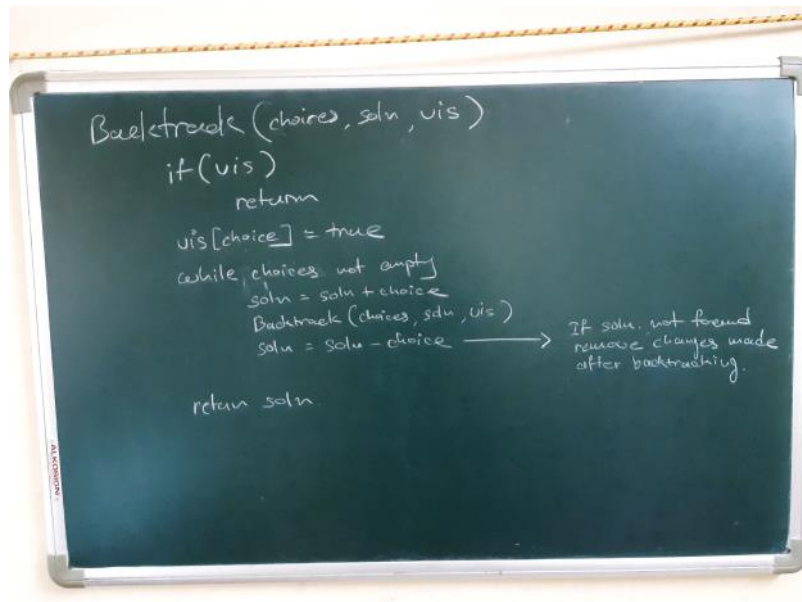 Backtrack (choices, soln, vis)
if (vis)
return
vis[choice] = true
while choices not empty
soln = soln + choice
Backtrack (choices, soln, vis)
soln = soln - choice → If soln. not found
remove changes made
after backtracking.
return soln.